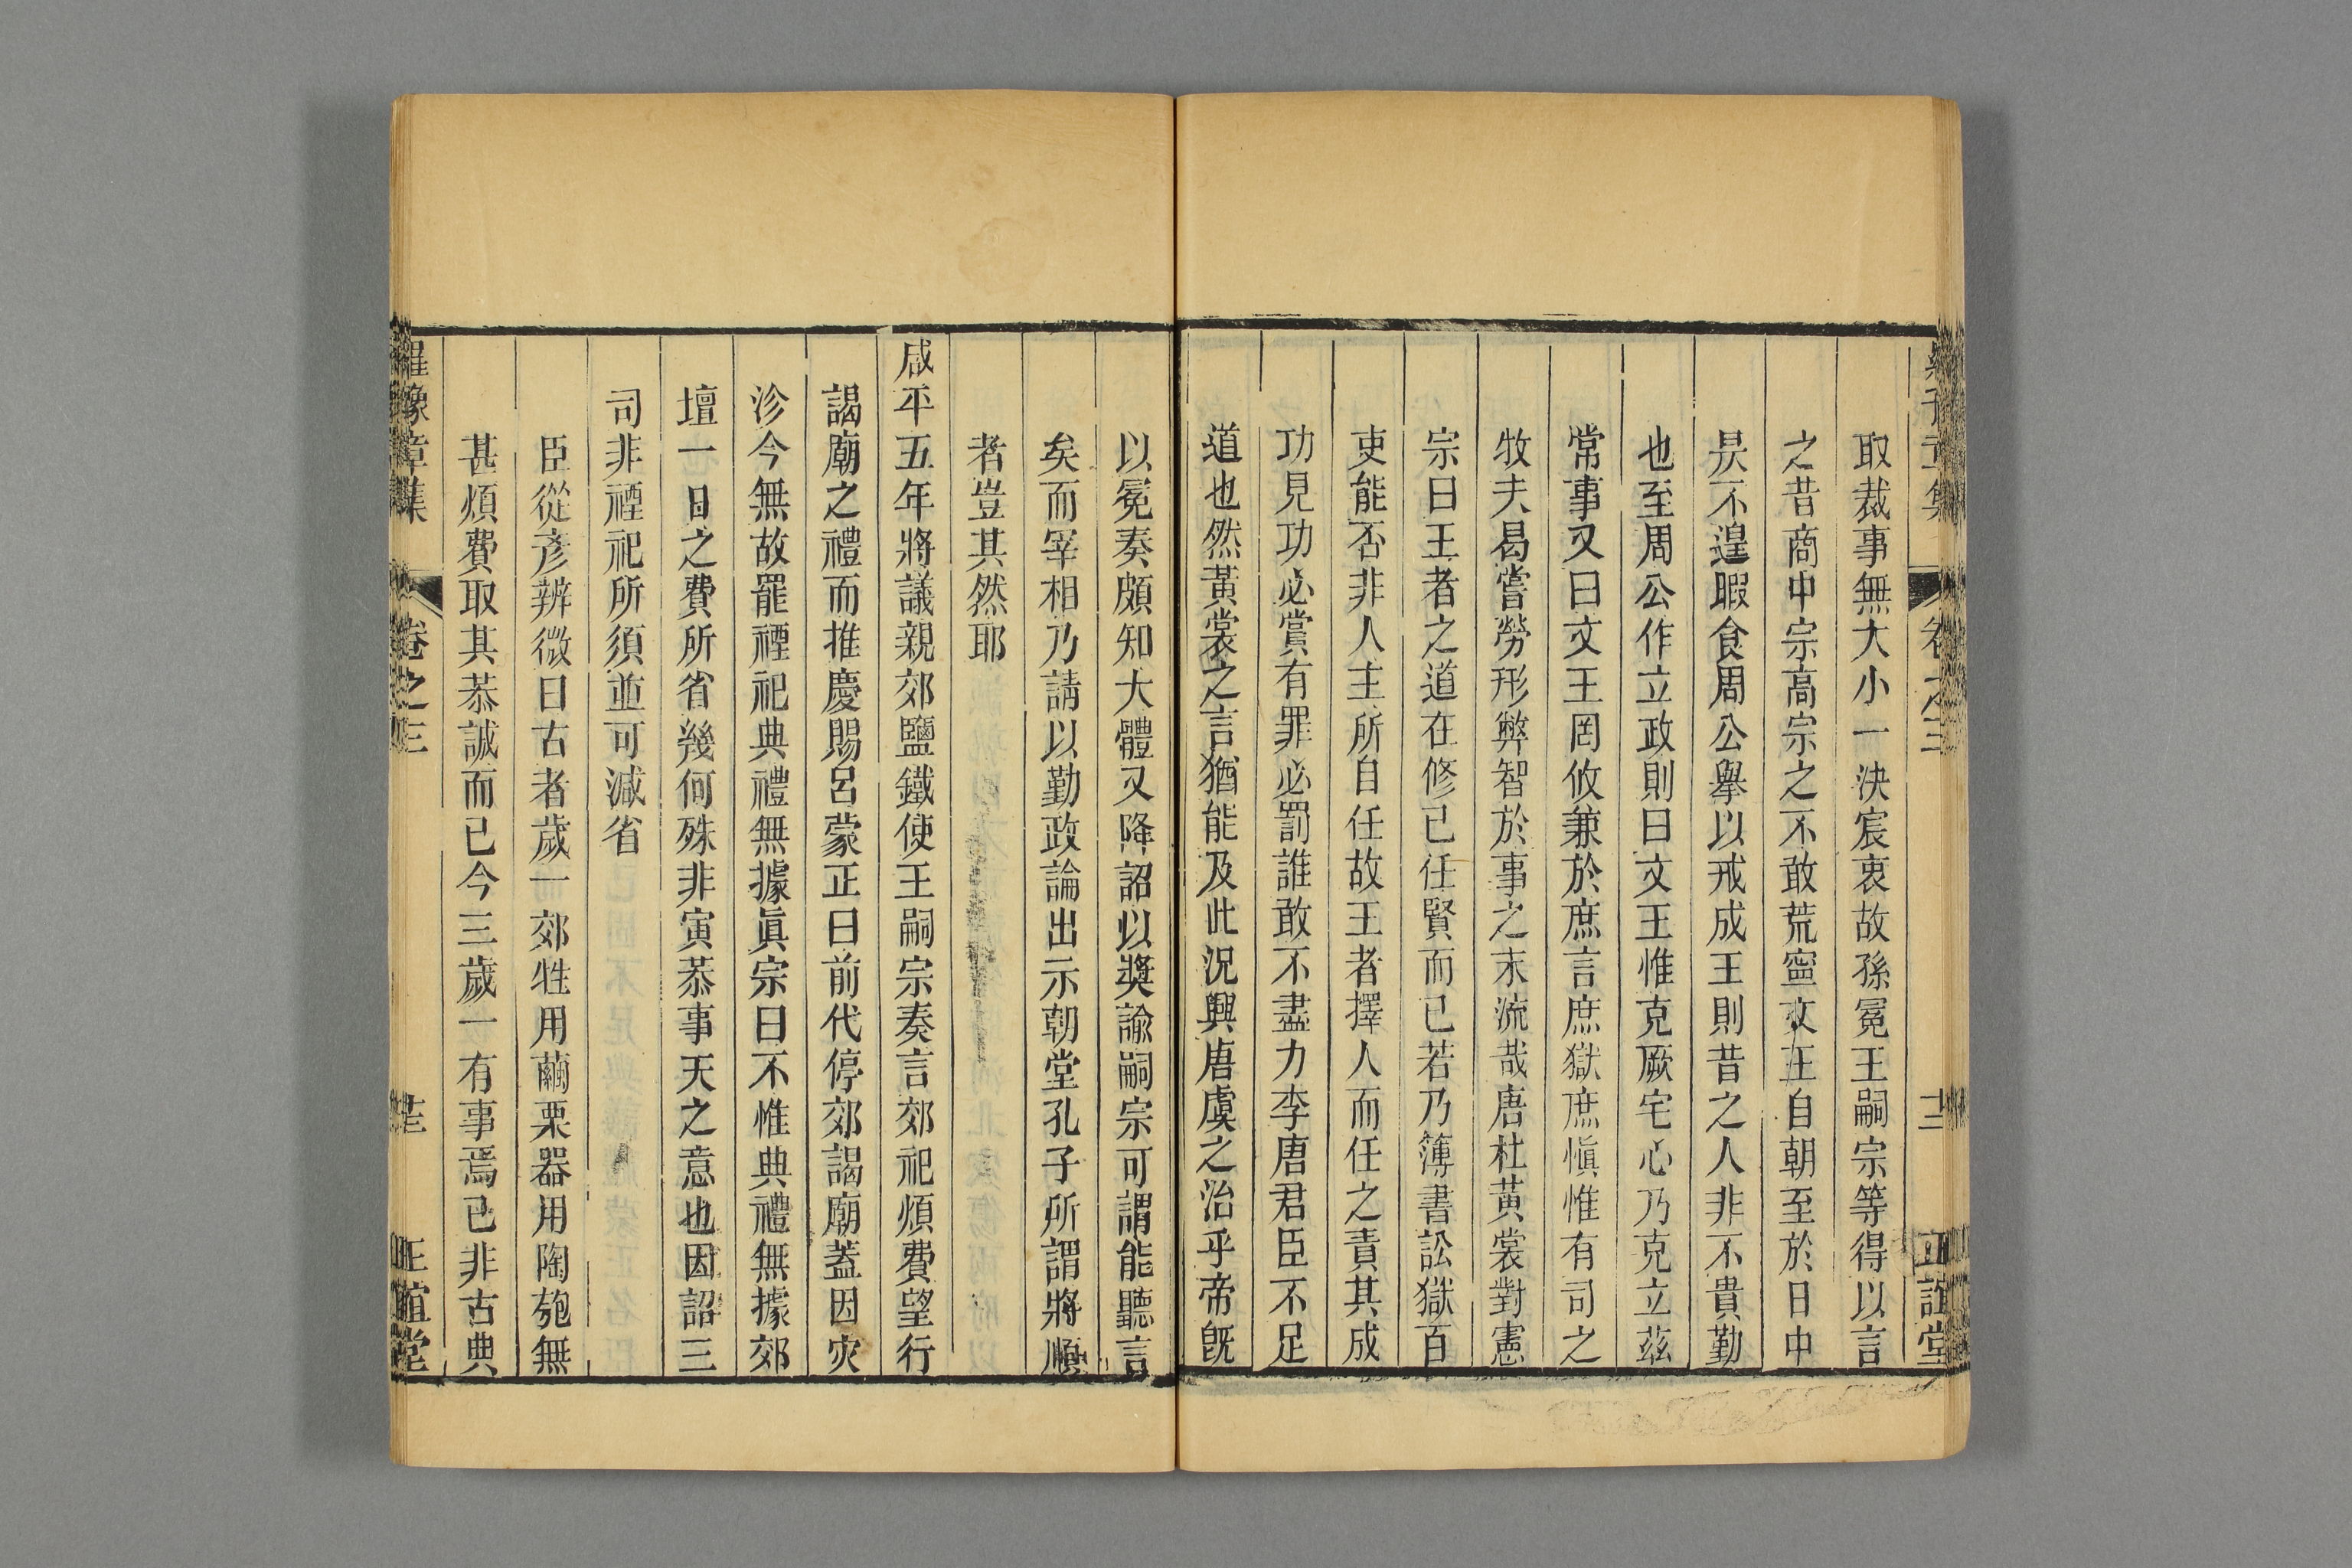 取裁事無大小一決宸衷故孫冕王嗣宗等得以言
之昔商中宗高宗之不敢荒寧文王自朝至於日中
昃不遑暇食周公舉以戒成王則昔之人非不貴勤
也至周公作立政則曰文王惟克厥宅心乃克立茲
常事又曰文王罔攸兼於庶言庶獄庶慎惟有司之
牧夫曷嘗勞形弊智於事之末流哉唐杜黃裳對憲
宗曰王者之道在修己任賢而已若乃簿書訟獄百
吏能否非人主所自任故王者擇人而任之責其成
功見功必賞有罪必罰誰敢不盡力李唐君臣不足
道也然黃裳之言猶能及此況興唐虞之治乎帝既
以冕奏頗知大體又降詔以獎諭嗣宗可謂能聽言
矣而宰相乃請以勤政論出示朝堂孔子所謂將順
者豈其然耶
咸平五年將議親郊鹽鐵使王嗣宗奏言郊祀煩費望行
謁廟之禮而推慶賜呂蒙正曰前代停郊謁廟蓋因灾
沴今無故罷禋祀典禮無據眞宗曰不惟典禮無據郊
壇一日之費所省幾何殊非寅恭事天之意也因詔三
司非禋祀所須並可減省
臣從彥辨微曰古者歲一郊牲用繭栗器用陶匏無
甚煩費取其恭誠而已今三歲一有事焉已非古典
羅豫章集
卷之三
正誼堂